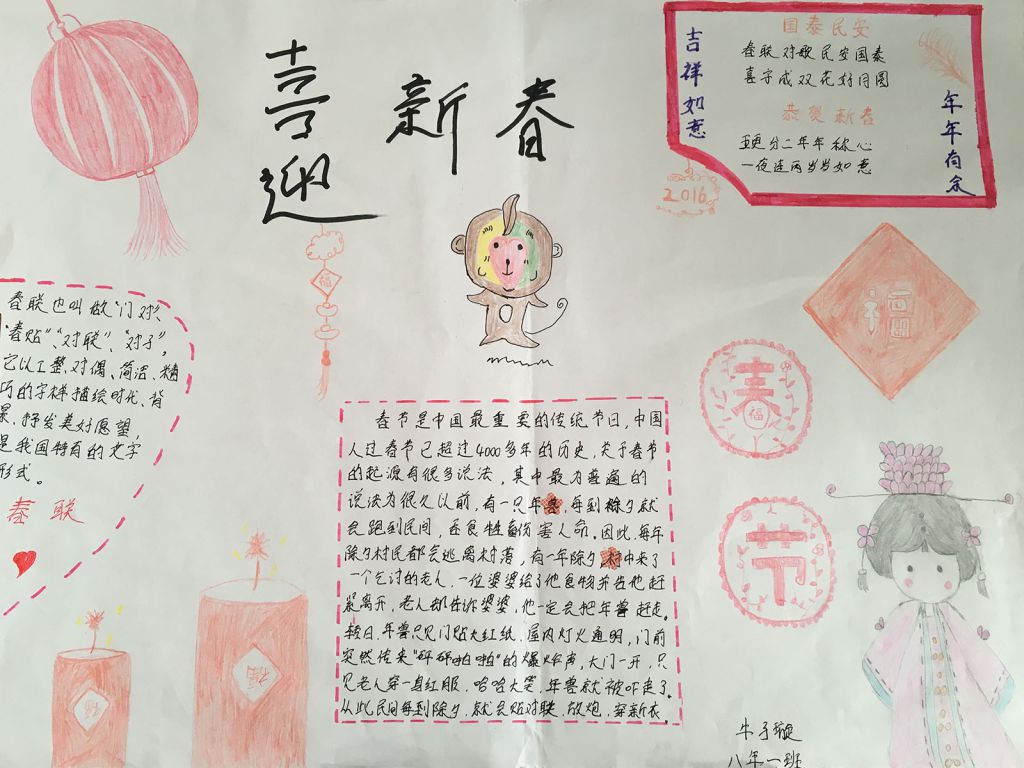 喜迎
新春
吉祥如意
国泰民安
春联对歌民安国泰
喜字成双花好月圆
恭贺新春
五更分二年年称心
一夜连两岁岁如意
年年有余
2016
福
福
春
福
节
春联也叫做"门对"、
"春贴"、"对联"、"对子",
它以工整、对偶、简洁、精
巧的字样描绘时代、背
景,抒发美好愿望,
是我国特有的文字
形式。
春联
春节是中国最重要的传统节日,中国
人过春节已超过4000多年的历史,关于春节
的起源有很多说法,其中最为普遍的
说法为很久以前,有一只年兽,每到除夕就
会跑到民间,还食牲畜伤害人命。因此,每年
除夕村民都会逃离村落,有一年除夕村中来了
一个乞讨的老人,一位婆婆给了他食物并告他赶
紧离开,老人却告诉婆婆,他一定会把年兽赶走。
转日,年兽只见门贴大红纸,屋内灯火通明,门前
突然传来"砰砰啪啪"的爆炸声,大门一开,只
见老人穿一身红服,哈哈大笑,年兽就被吓走了。
从此民间每到除夕,就会贴对联、放炮、穿新衣。
福
福
牛子璇
八年一班